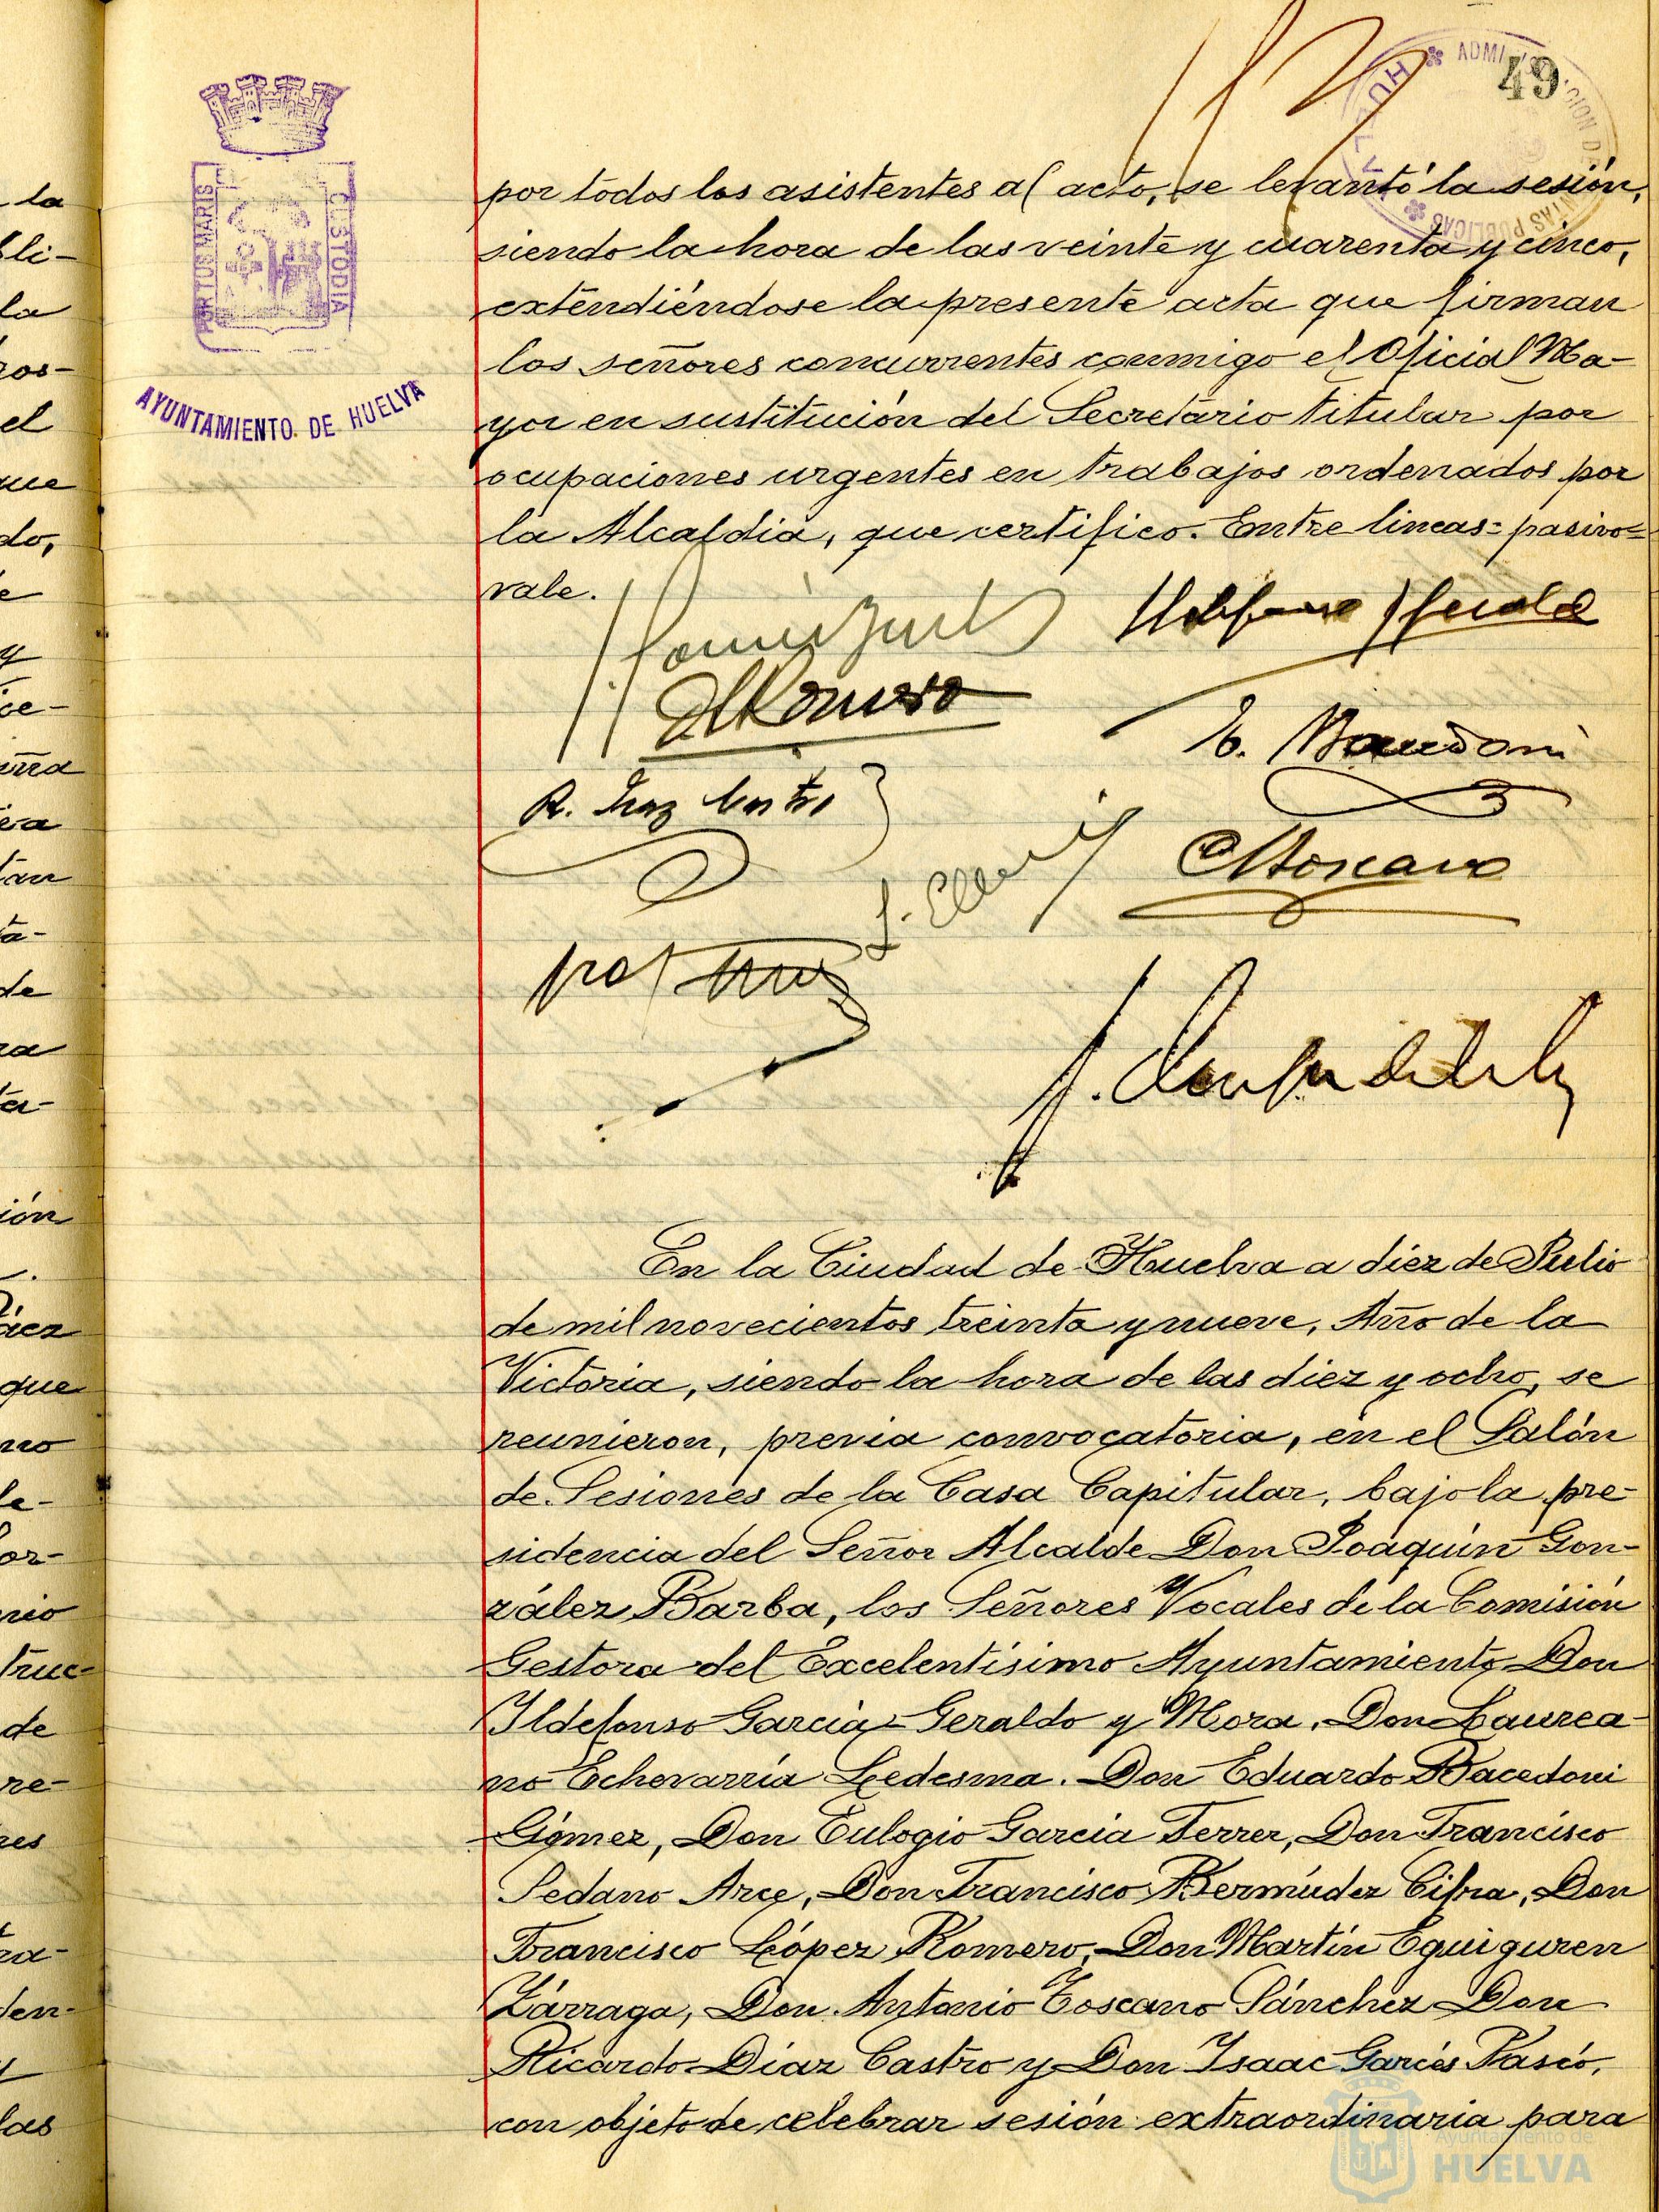 49
PORTUS MARIS CUSTODIA
AYUNTAMIENTO DE HUELVA
por todos los asistentes al acto, se levantó la sesión,
siendo la hora de las veinte y cuarenta y cinco,
extendiéndose la presente acta que firman
los señores concurrentes conmigo el Oficial Ma-
yor en sustitución del Secretario titular por
ocupaciones urgentes en trabajos ordenados por
la Alcaldia, que certifico. Entre lineas= pasivo=
vale.
R. Diaz Castro
En la Ciudad de Huelva a diez de Julio
de mil novecientos treinta y nueve, Año de la
Victoria, siendo la hora de las diez y ocho, se
reunieron, previa convocatoria, en el Salón
de Sesiones de la Casa Capitular, bajo la pre-
sidencia del Señor Alcalde Don Joaquín Gon-
zález Barba, los Señores Vocales de la Comisión
Gestora del Excelentísimo Ayuntamiento Don
Ildefonso García-Geraldo y Mora, Don Laurea-
no Echevarría Ledesma. Don Eduardo Bacedoni
Gómez, Don Eulogio García Ferrer, Don Francisco
Sedano Arce, Don Francisco Bermúdez Cifra, Don
Francisco López Romero, Don Martín Eguiguren
Zárraga, Don Antonio Toscano Sánchez Don
Ricardo Díaz Castro y Don Isaac Garcés Pasco,
con objeto de celebrar sesión extraordinaria para
Ayuntamiento de
HUELVA